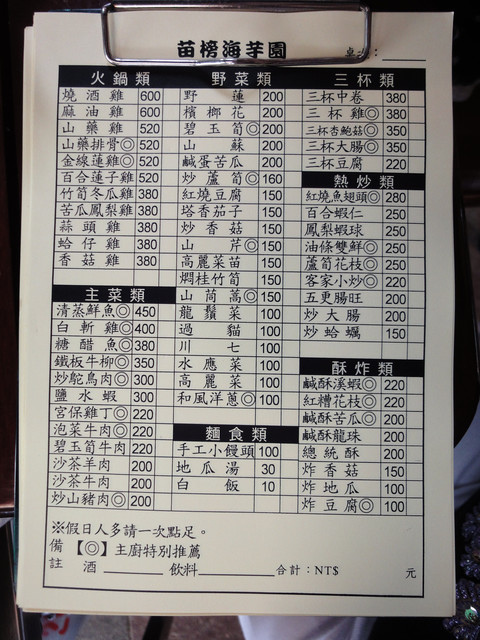 苗榜海芋園
桌
火鍋類
燒酒雞 600
麻油雞 600
山藥雞 520
山藥排骨◎ 520
金線蓮雞◎ 520
百合蓮子雞 520
竹筍冬瓜雞 380
苦瓜鳳梨雞 380
蒜頭雞 380
蛤仔雞 380
香菇雞 380
主菜類
清蒸鮮魚◎ 450
白斬雞◎ 400
糖醋魚◎ 380
鐵板牛柳◎ 350
炒鴕鳥肉◎ 300
鹽水蝦 300
宮保雞丁◎ 220
泡菜牛肉◎ 220
碧玉筍牛肉 220
沙茶羊肉 200
沙茶牛肉 200
炒山豬肉◎ 200
野菜類
野蓮 200
檳榔花 200
碧玉筍◎ 200
山蘇 200
鹹蛋苦瓜 200
炒蘆筍◎ 160
紅燒豆腐 150
塔香茄子 150
炒香菇 150
山芹◎ 150
高麗菜苗 150
燜桂竹筍 150
山茼萵◎ 150
龍鬚菜 100
過貓 100
川七 100
水應菜 100
高麗菜 100
和風洋蔥◎ 100
麵食類
手工小饅頭 100
地瓜湯 30
白飯 10
三杯類
三杯中卷 380
三杯雞◎ 380
三杯杏鮑菇◎ 350
三杯大腸◎ 350
三杯豆腐 220
熱炒類
紅燒魚翅頭◎ 280
百合蝦仁 250
鳳梨蝦球 250
油條雙鮮◎ 250
蘆筍花枝◎ 250
客家小炒◎ 220
五更腸旺 200
炒大腸 200
炒蛤蠣 150
酥炸類
鹹酥溪蝦◎ 220
紅糟花枝◎ 220
鹹酥苦瓜◎ 200
鹹酥龍珠 200
總統酥 200
炸香菇 150
炸地瓜 100
炸豆腐◎ 100
※假日人多請一次點足。
備註【◎】主廚特別推薦
酒 飲料 合計：NT$ 元